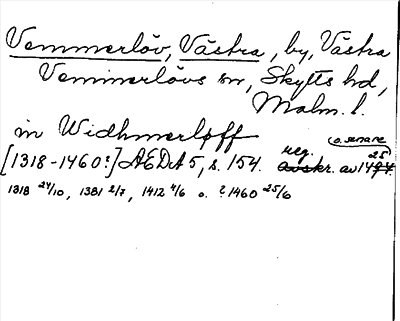 Vemmerlöv, Västra, by, Västra
Vemmerlövs sn, Skytts hd,
Malm. l.
in Widhmerløff
o. senare
[1318-1460?] AEDA 5, s. 154. reg. avskr. av 1494. 25
1318 24/10, 1381 2/7, 1412 4/6 o. ? 1460 25/6